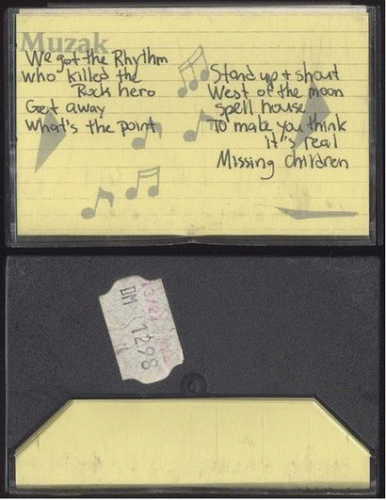 Muzak
We got the Rhythm
Who killed the
Rock hero
Get away
What's the point
Stand up + shout
West of the moon
spell house
To make you think
It's real
Missing children
DM 1298